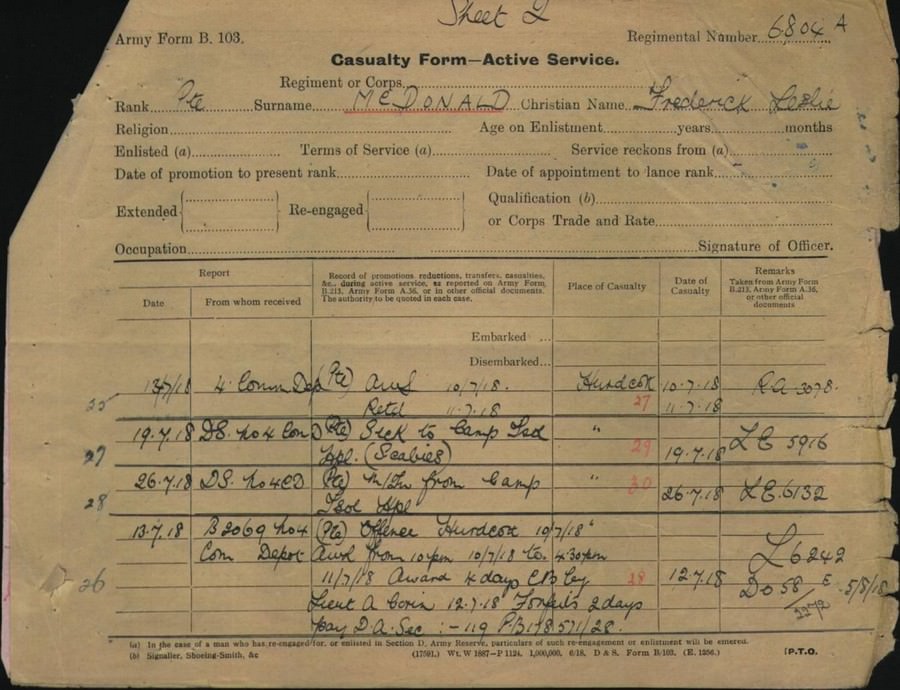 Sheet 2
Army Form B. 103.
Regimental Number 6804 A
Casualty Form—Active Service.
Regiment or Corps
Rank Pte Surname McDONALD Christian Name Frederick Leslie
Religion Age on Enlistment years months
Enlisted (a) Terms of Service (a) Service reckons from (a)
Date of promotion to present rank Date of appointment to lance rank
Extended Re-engaged Qualification (b)
or Corps Trade and Rate
Occupation Signature of Officer.
Report
Date
From whom received
Record of promotions, reductions, transfers, casualties,
&c., during active service, as reported on Army Form
B.213, Army Form A.36, or in other official documents.
The authority to be quoted in each case.
Place of Casualty
Date of
Casualty
Remarks
Taken from Army Form
B.213, Army Form A.36,
or other official
documents
Embarked ...
Disembarked ...
25 13/7/18 4 Comm Dep (Pte) Awl 10/7/18. Hurdcott 10.7.18 RA 3078.
Retd 11.7.18 27 11.7.18
19.7.18 DS. No 4 Con D (Pte) Sick to Camp Isol " 29 19.7.18 LE 5916
27 Hpl. (Scabies)
26.7.18 DS. No 4 CD (Pte) M/In from Camp " 30 26.7.18 LE.6132
28 Isol Hpl
13.7.18 B2069 No 4 (Pte) Offence Hurdcott 10/7/18 "
Com Depot Awl from 10 pm 10/7/18 to 4.30pm L6242
26 11/7/18 Award 4 days CB by 28 12.7.18 Do 58 E 5/8/18
Lieut A 12.7.18 Forfeits 2 days 2272
pay D.A. Sec :- 119 P.B178571/28.
(a) In the case of a man who has re-engaged for, or enlisted in Section D, Army Reserve, particulars of such re-engagement or enlistment will be entered.
(b) Signaller, Shoeing-Smith, &c (17591.) Wt. W 1887—P 1124. 1,000,000. 6/18. D & S. Form B/103. (E. 1256.) [P.T.O.